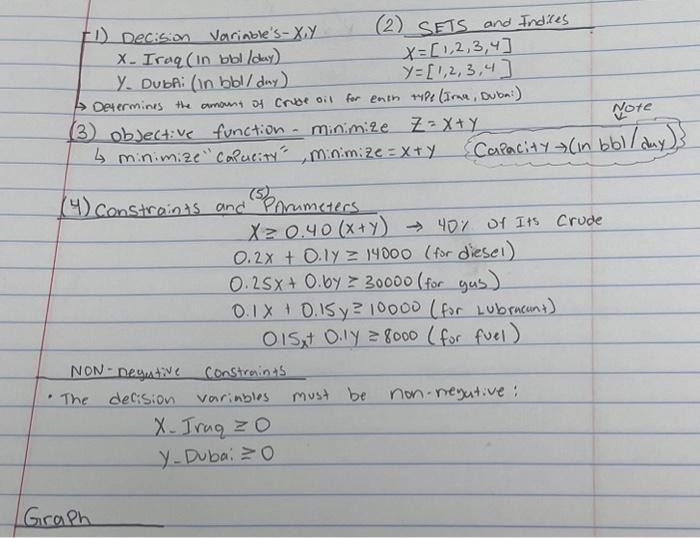 (1) Decision Variable's - X,Y
X - Iraq (in bbl/day)
Y - Dubai (in bbl/day)
↳ Determines the amount of Crude oil for each type (Iraq, Dubai)
(2) SETS and Indices
X = [1,2,3,4]
Y = [1,2,3,4]
(3) objective function - minimize Z = X+Y
↳ minimize "capacity", minimize = x+y
Note
Capacity → (in bbl/day)
(4) Constraints and (5) Parameters
X ≥ 0.40 (x+y) → 40% of Its Crude
0.2x + 0.1y ≥ 14000 (for diesel)
0.25x + 0.6y ≥ 30000 (for gas)
0.1x + 0.15y ≥ 10000 (for Lubracant)
015x + 0.1y ≥ 8000 (for fuel)
NON-negative Constraints
• The decision variables must be non-negative:
X - Iraq ≥ 0
Y - Dubai ≥ 0
Graph